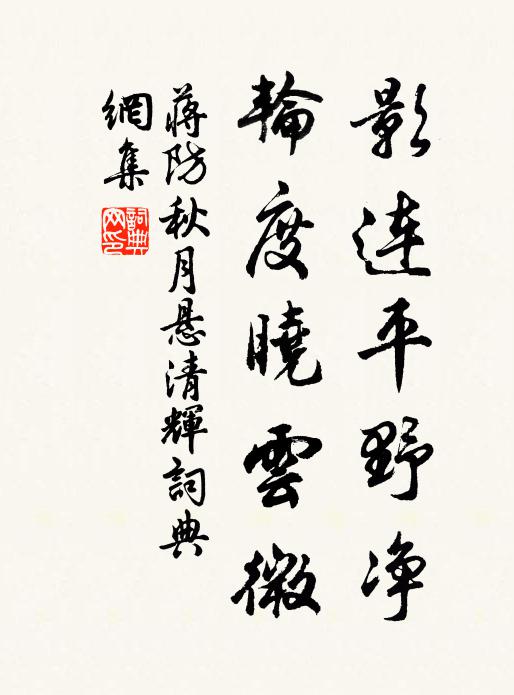 影連平野净
輪度曉雲微
蔣防秋月悬清輝詞典
網集
詞典網印